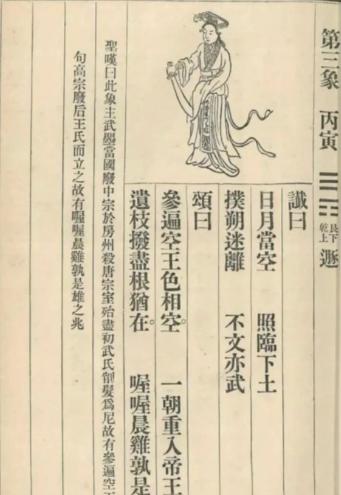 第三象 丙寅 ☰☶ 艮下乾上 遯
讖曰
日月當空 照臨下土
撲朔迷離 不文亦武
頌曰
參遍空王色相空。 一朝重入帝王
遺枝撥盡根猶在。 喔喔晨雞孰是
聖嘆曰此象主武曌當國廢中宗於房州殺唐宗室殆盡初武氏削髮爲尼故有參遍空
句高宗廢后王氏而立之故有喔喔晨雞孰是雄之兆